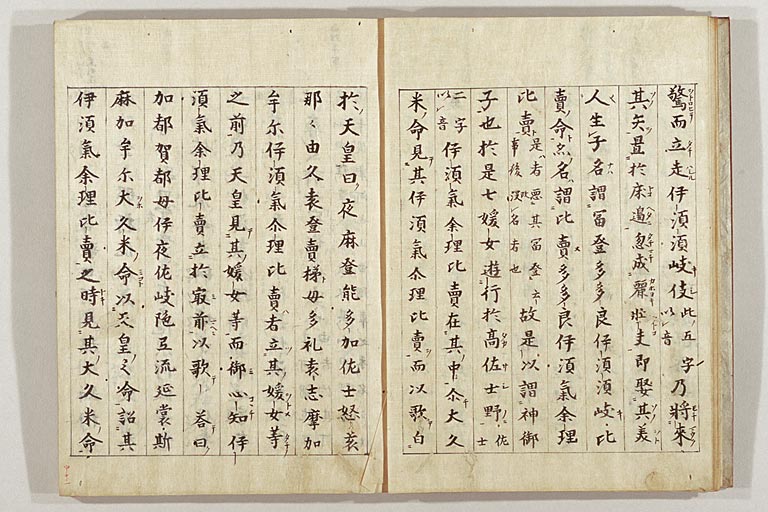 驚而立走伊須須岐伎此五字以音乃將來
其矢置於床邊忽成麗壯夫即娶其美
人生子名謂冨登多多良伊須須岐比
賣命亦名謂比賣多多良伊須氣余理
比賣是者惡其冨登云事後改名者也故是以謂神御
子也於是七媛女遊行於高佐士野佐士
二字以音伊須氣余理比賣在其中尒大久
米命見其伊須氣余理比賣而以歌白
於天皇曰夜麻登能多加佐士怒袁
那〻由久袁登賣禔母多礼袁志摩加
牟尒伊須氣余理比賣者立其媛女等
之前乃天皇見其媛女等而御心知伊
須氣余理比賣立於寂前以歌答曰
加都賀都母伊夜佐岐陁互流延裳斯
麻加牟尒大久米命以天皇之命詔其
伊須氣余理比賣之時見其大久米命